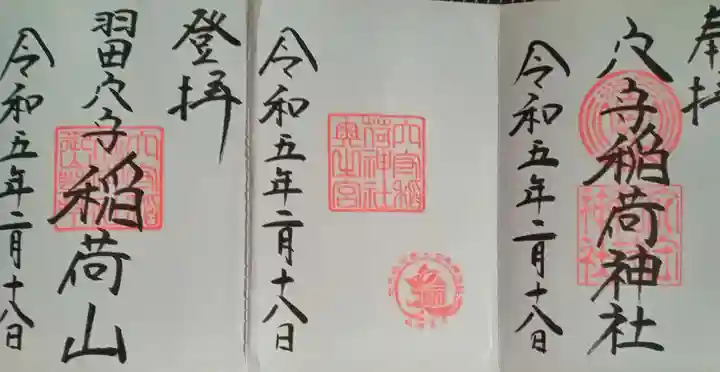 奉拝
穴守稲荷神社
令和五年二月十八日
穴守稲
荷神社
奥之宮
令和五年二月十八日
登拝
羽田穴守稲荷山
令和五年二月十八日